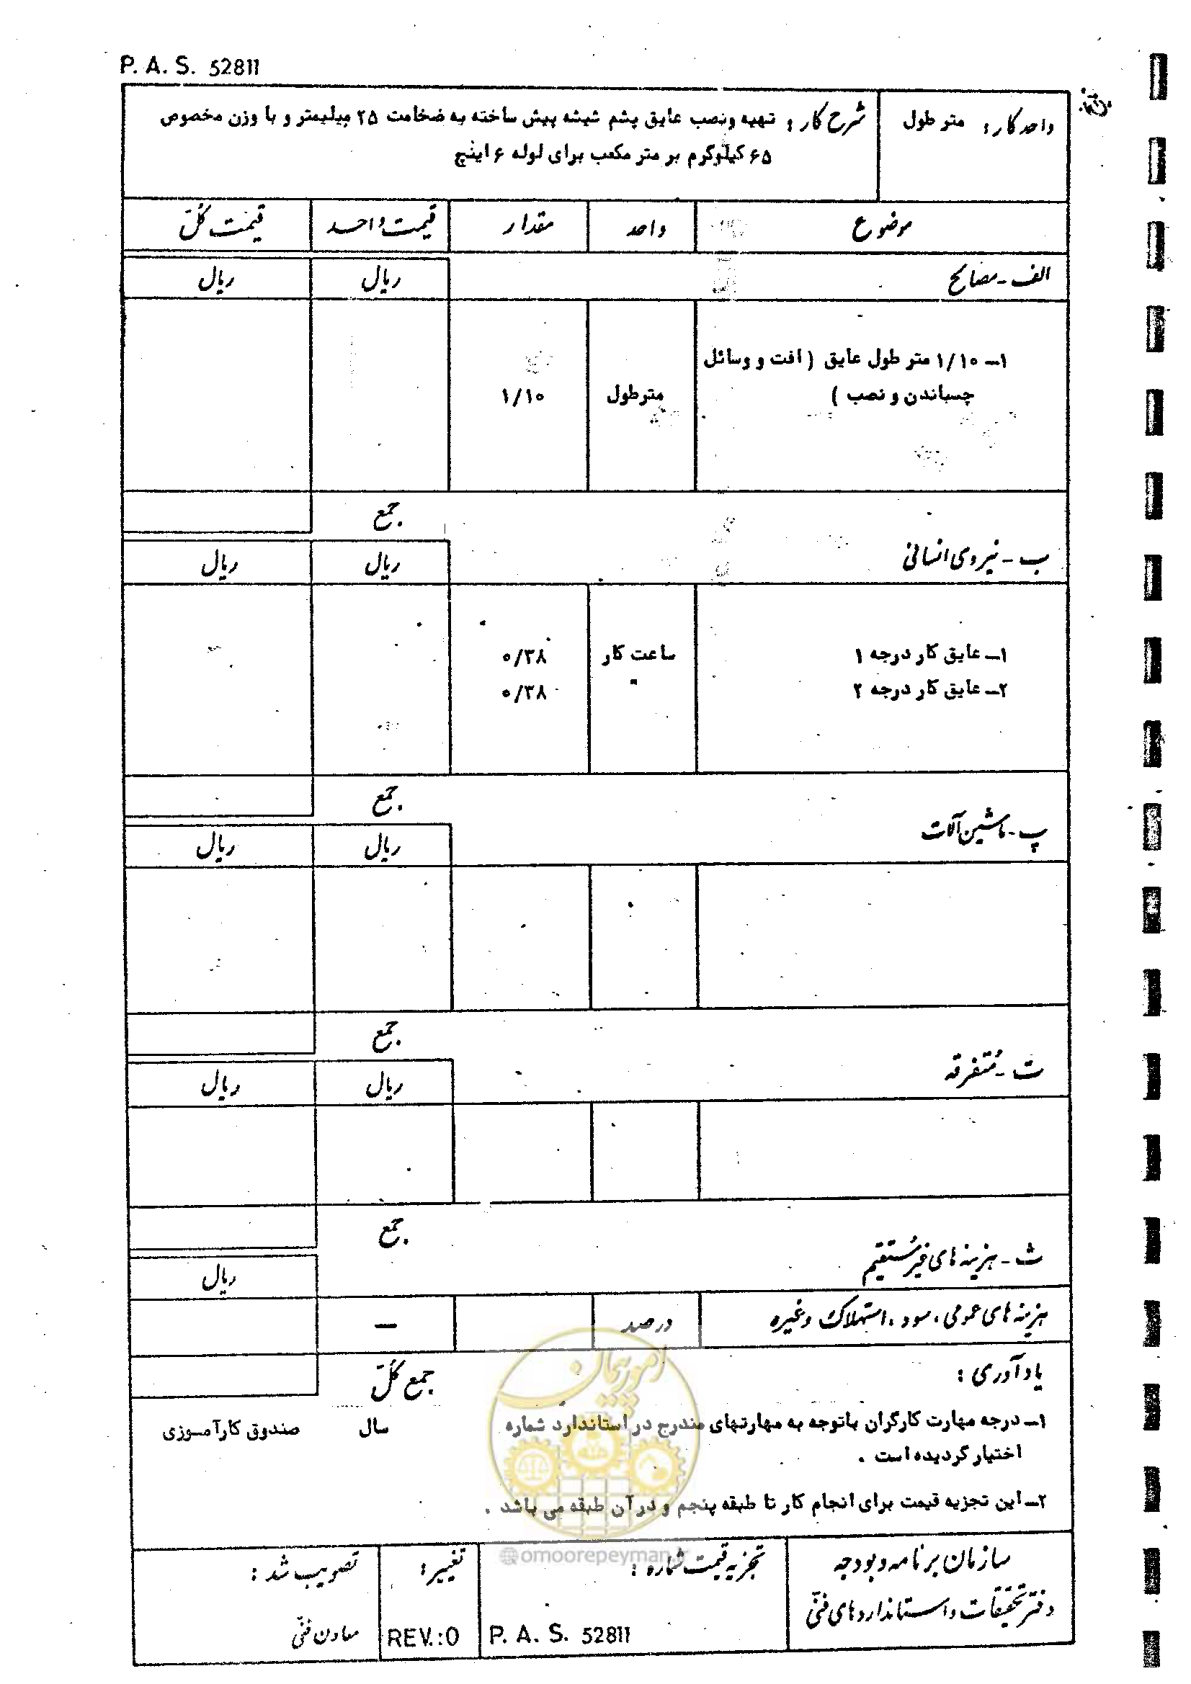 P. A. S. 52811
واحد کار: متر طول
شرح کار: تهیه ونصب عایق پشم شیشه پیش ساخته به ضخامت ۲۵ میلیمتر و با وزن مخصوص
۶۵ کیلوگرم بر متر مکعب برای لوله ۶ اینچ
موضوع واحد مقدار قیمت واحد قیمت کلّ
الف - مصالح ریال ریال
۱ــ ۱/۱۰ متر طول عایق ( افت و وسائل
چسباندن و نصب ) مترطول ۱/۱۰
جمع
ب - نیروی انسانی ریال ریال
۱ــ عایق کار درجه ۱ ساعت کار ۰/۳۸
۲ــ عایق کار درجه ۲ " ۰/۳۸
جمع
پ - ماشین آلات ریال ریال
جمع
ت - مُتفرقه ریال ریال
جمع
ث - هزینه های غیرمُستقیم ریال
هزینه های عمومی ، سود ، استهلاک وغیره درصد —
یادآوری : جمع کلّ
۱ــ درجه مهارت کارگران باتوجه به مهارتهای مندرج در استاندارد شماره سال صندوق کارآموزی
اختیار گردیده است .
۲ــ این تجزیه قیمت برای انجام کار تا طبقه پنجم و در آن طبقه می باشد .
امور پیمان
@omoorepeyman.ir
سازمان برنامه و بودجه
دفتر تحقیقات و استانداردهای فنّی
تجزیه قیمت شماره :
P. A. S. 52811
تغییر :
REV.:0
تصویب شد :
معاون فنّی